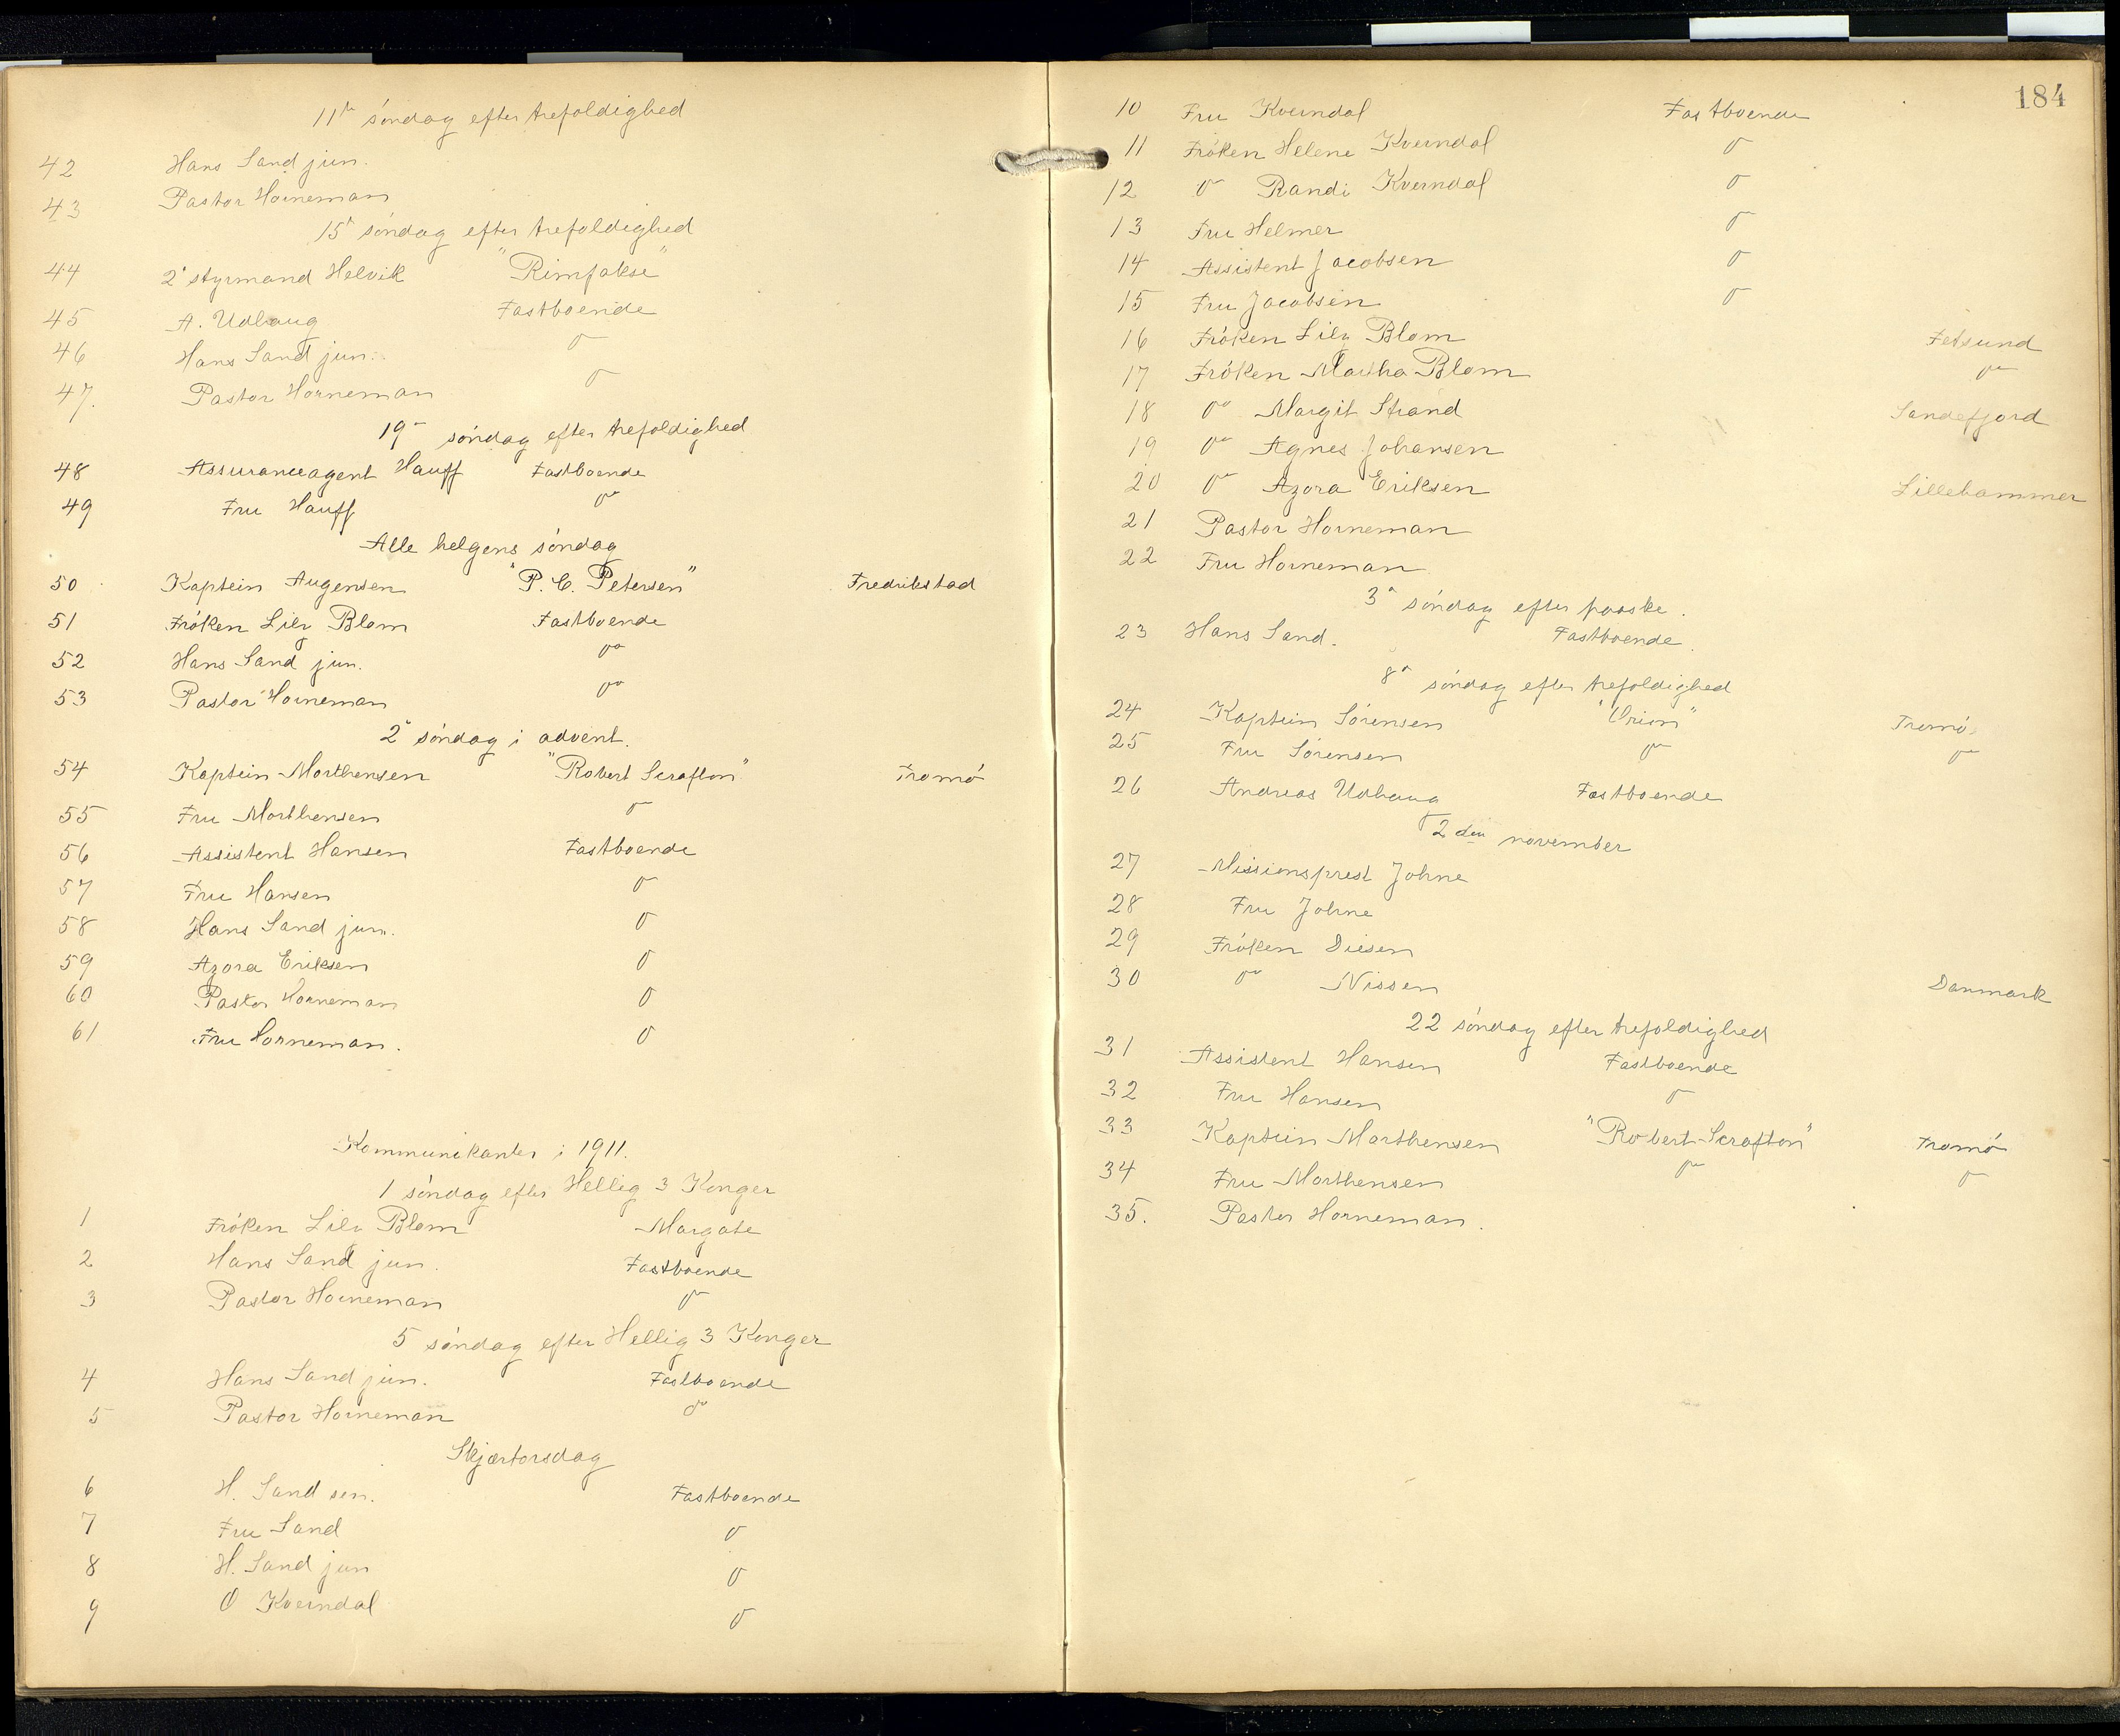 11te søndag efter trefoldighed
42 Hans Sand jun.
43 Pastor Horneman
15de søndag efter trefoldighed
44 2' styrmand Helvik "Rimfakse"
45 A. Udhaug Fastboende
46 Hans Sand jun. do
47. Pastor Horneman do
19de søndag efter trefoldighed
48 Assuranceagent Hauff Fastboende
49 Fru Hauff do
Alle helgens søndag
50 Kaptein Augensen "P. C. Petersen" Fredrikstad
51 Frøken Lily Blom Fastboende
52 Hans Sand jun. do
53 Pastor Horneman do
2' søndag i advent.
54 Kaptein Morthensen "Robert Scrafton" Tromø
55 Fru Morthensen do
56 Assistent Hansen Fastboende
57 Fru Hansen do
58 Hans Sand jun. do
59 Azora Eriksen do
60 Pastor Horneman do
61 Fru Horneman. do
Kommunikanter i 1911.
1 søndag efter Hellig 3 Konger
1 Frøken Lily Blom Margate
2 Hans Sand jun. Fastboende
3 Pastor Horneman do
5 søndag efter Hellig 3 Konger
4 Hans Sand jun. Fastboende
5 Pastor Horneman do
Skjærtorsdag
6 H. Sand sen. Fastboende
7 Fru Sand do
8 H. Sand jun do
9 O Kverndal do
184
10 Fru Kverndal Fastboende
11 Frøken Helene Kverndal do
12 do Randi Kverndal do
13 Fru Helmer do
14 Assistent Jacobsen do
15 Fru Jacobsen do
16 Frøken Lily Blom Fetsund
17 Frøken Martha Blom do
18 do Margit Strand Sandefjord
19 do Agnes Johansen
20 do Azora Eriksen Lillehammer
21 Pastor Horneman
22 Fru Horneman
3de søndag efter paaske.
23 Hans Sand. Fastboende.
8de søndag efter trefoldighed
24 Kaptein Sørensen "Orion" Tromø
25 Fru Sørensen do do
26 Andreas Udhaug Fastboende
2den november
27 Missionsprest Johne
28 Fru Johne
29 Frøken Diesen
30 do Nissen Danmark
22 søndag efter trefoldighed
31 Assistent Hansen Fastboende
32 Fru Hansen do
33 Kaptein Morthensen "Robert Scrafton" Tromø
34 Fru Morthensen do do
35. Pastor Horneman.